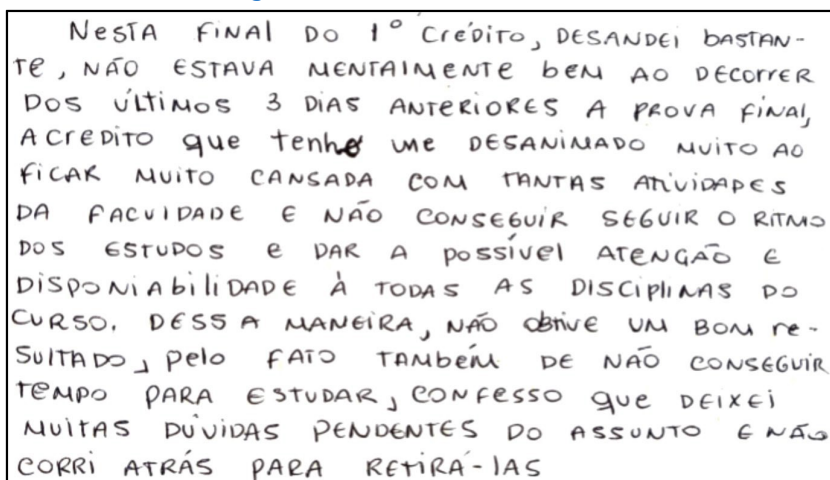 NESTA FINAL DO 1º CRÉDITO, DESANDEI BASTAN-
TE, NÃO ESTAVA MENTALMENTE BEM AO DECORRER
DOS ÚLTIMOS 3 DIAS ANTERIORES A PROVA FINAL,
ACREDITO que tenho me DESANIMADO MUITO AO
FICAR MUITO CANSADA COM TANTAS ATIVIDADES
DA FACULDADE E NÃO CONSEGUIR SEGUIR O RITMO
DOS ESTUDOS e DAR A possível ATENÇÃO E
DISPONIABILIDADE À TODAS AS DISCIPLINAS DO
CURSO. DESSA MANEIRA, NÃO OBTIVE UM BOM re-
SULTADO, pelo FATO TAMBÉM DE NÃO CONSEGUIR
TEMPO PARA ESTUDAR, CONFESSO que DEIXEI
MUITAS DÚVIDAS PENDENTES DO ASSUNTO E NÃO
CORRI ATRÁS PARA RETIRÁ-LAS